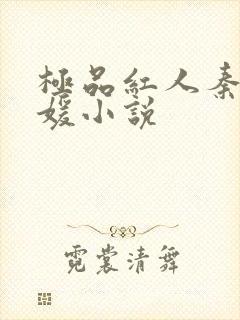 極品紅人秦
媛小說
霓裳清舞